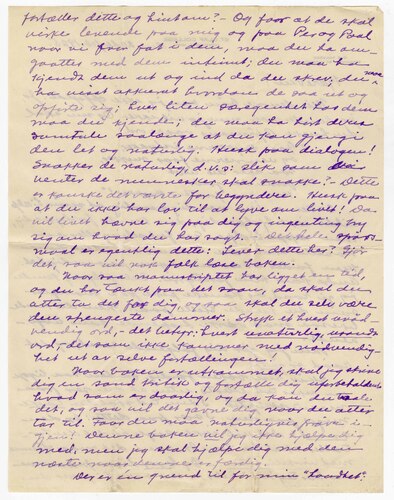 fortæller dette og hintam? - Og for at de skal
virke levende paa mig og paa Per og Paal
naar vi faar fat i dem, maa du ha om-
gaattes med dem intimt; du maa ha
kjendt dem ut og ind da du skrev, du maa
ha visst akkurat hvordan de saa ut og
opførte sig; hver liten særegenhet hos dem
maa du kjende; du maa ha hørt deres
samtale saalænge at du kan gjengi
den let og naturlig. Husk paa dialogen!
Snakker de naturlig, d.v.s: slik som vi
venter de mennesker skal snakke? - Dette
er kanske det værste for begyndere. Husk paa
at du ikke har lov til at lyve om livet! Da
vil livet hævne sig paa dig og ingenting bry
sig om hvad du har sagt. Det hele spørs-
maal er egentlig dette: Lever dette her? Gjør
det, saa vil nok folk læse boken.
Naar saa manuskriptet har ligget en tid,
og du har tænkt paa det saan, da skal du
atter ta det for dig, og saa skal du selv være
den strengeste dommer. Stryk et hvert unød-
vendig ord, - det betyr: hvert unaturlig, usandt
ord, - det som ikke kommer med nødvendig-
het ut av selve fortællingen!
Naar boken er utkommet, skal jeg skrive
dig en sand kritik og fortælle dig uforbeholdent
hvad som er daarlig, og da kan du taale
det, og saa vil det gavne dig naar du atter
tar til. For du maa naturligvis prøve i-
gjen! Denne boken vil jeg ikke hjælpe dig
med, men jeg skal hjælpe dig med den
næste naar den er færdig.
Der er en grund til for min "haardhet".